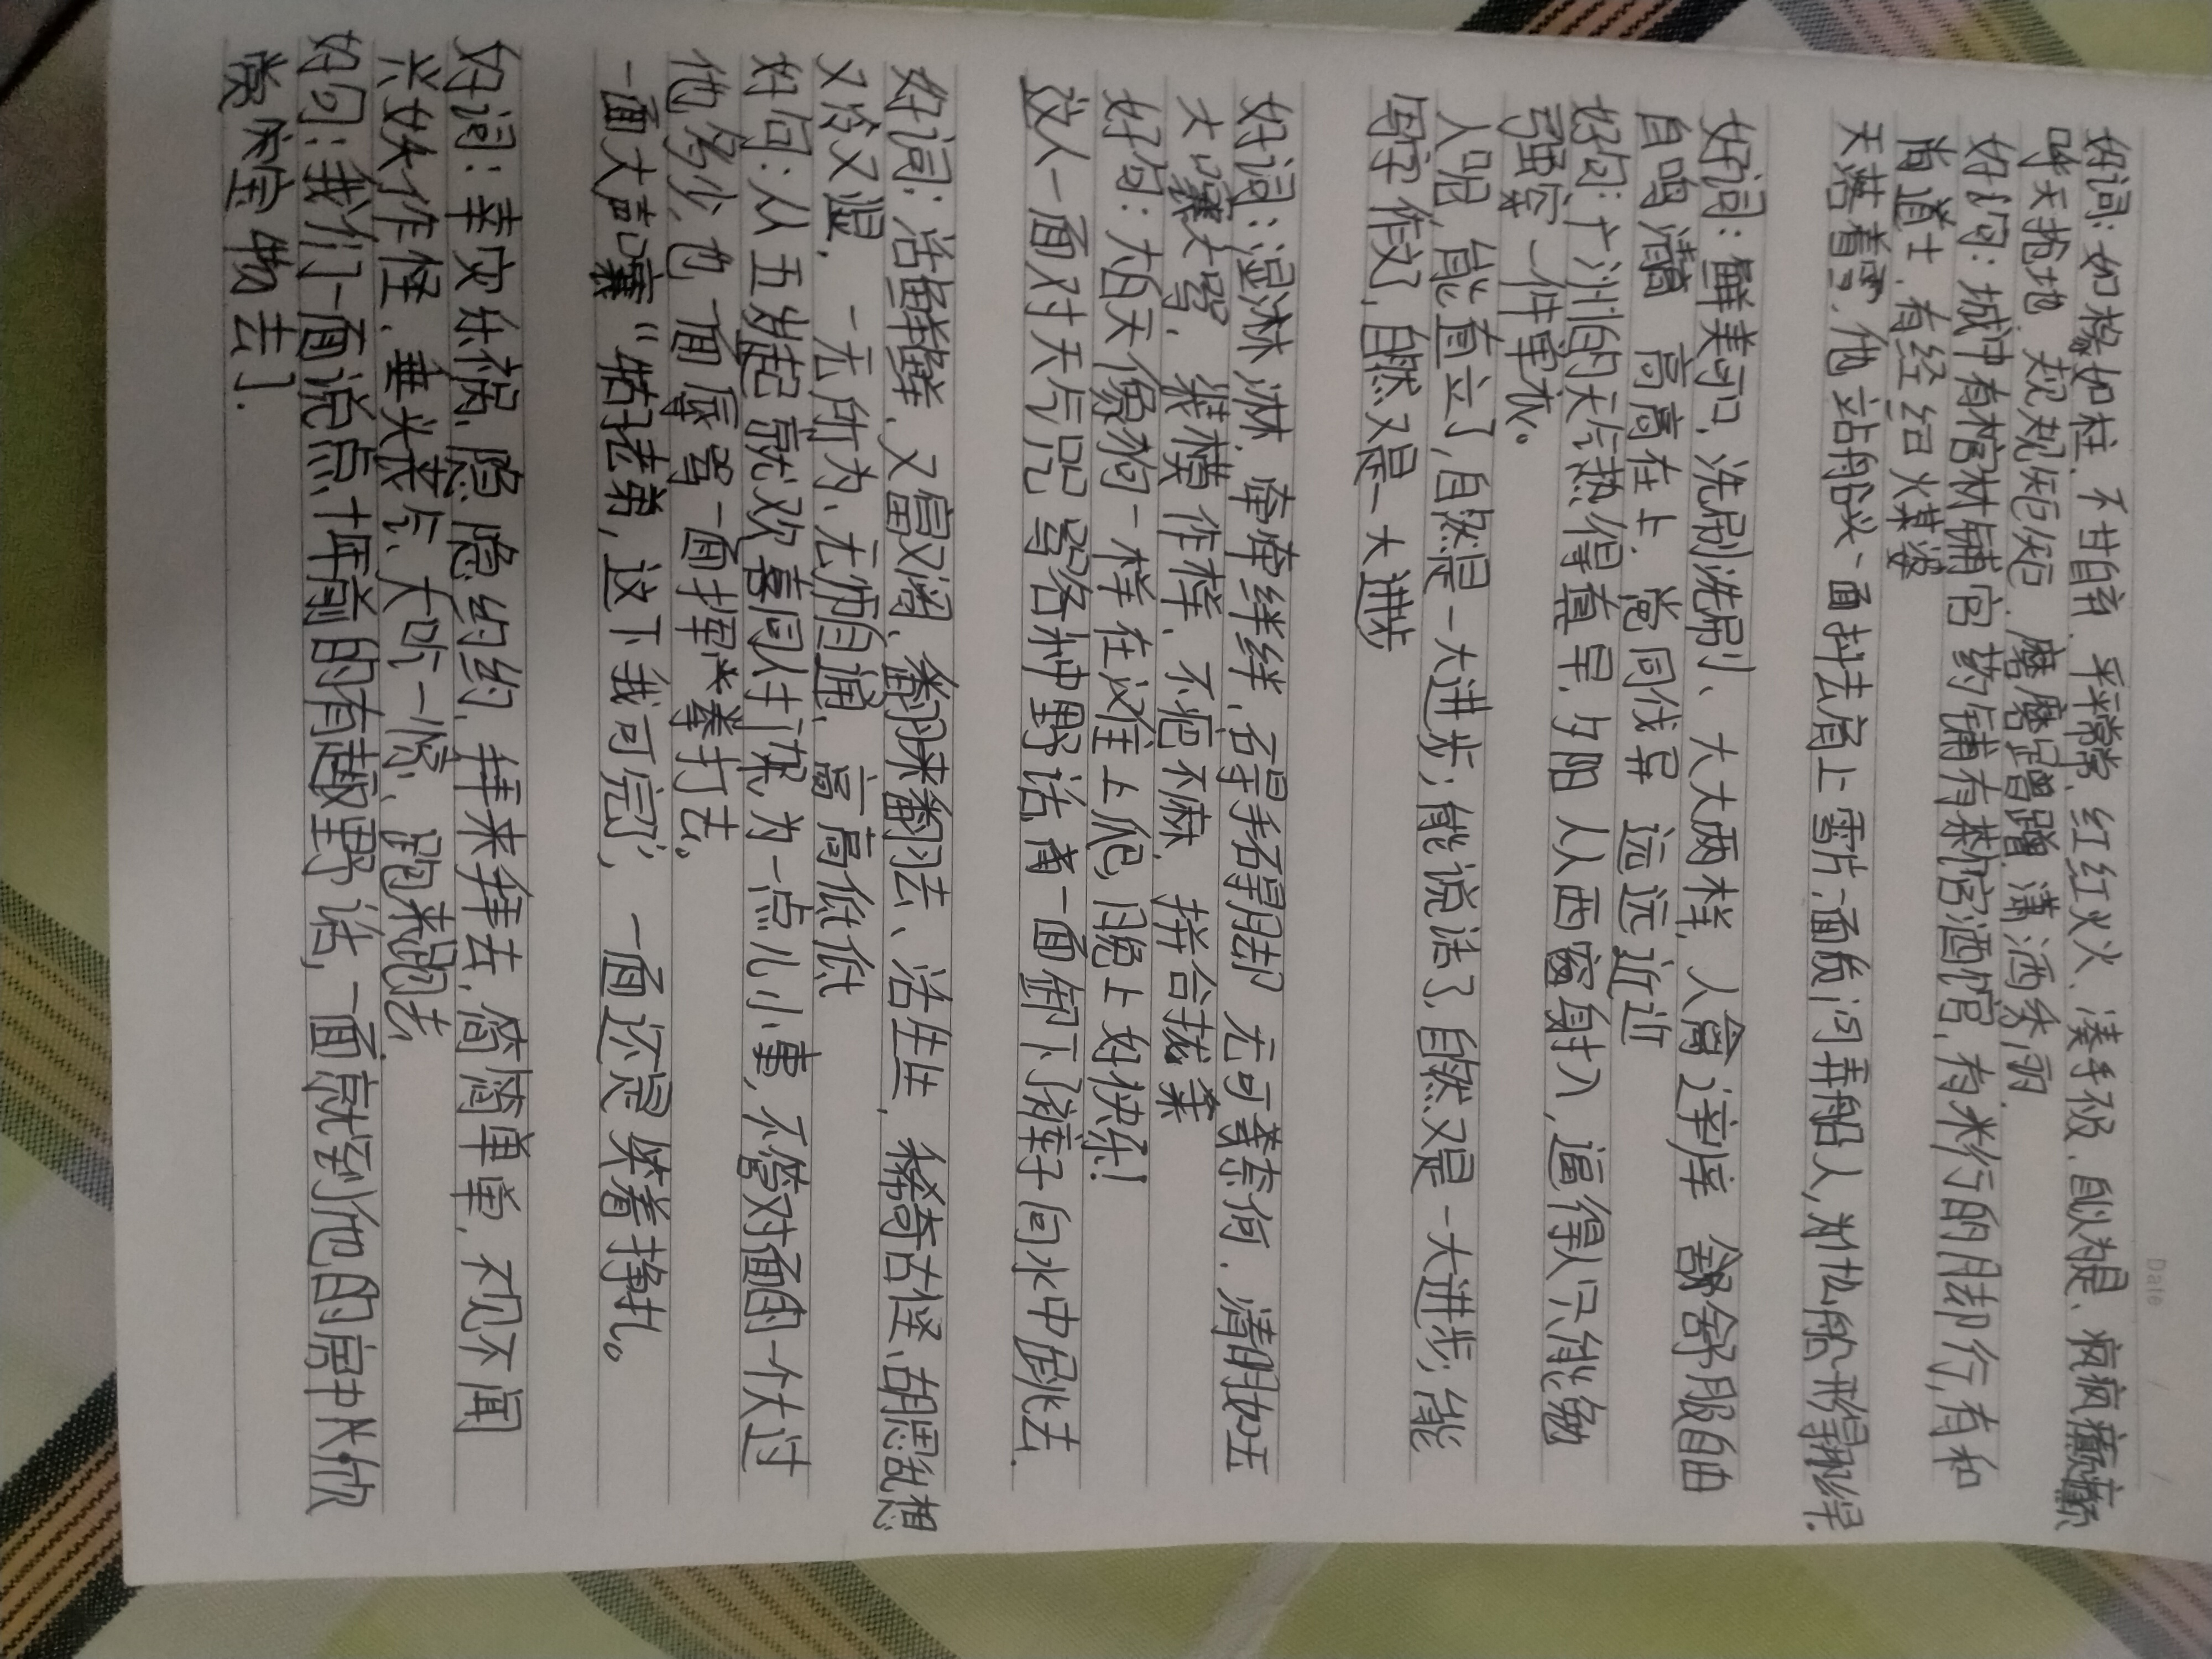 Date
好词：如椽如柱、不甘自弃、平平常常、红红火火、凑手不及、自以为是、疯疯癫癫
呼天抢地、规规矩矩、磨磨蹭蹭、潇洒秀丽
好句：城中有棺材铺官药铺有茶馆酒馆，有米行的脚行，有和
尚道士，有经纪火媒婆
天落着雪，他站船头一面抖去肩上雪片，一面质问弄船人，对于航行形得
好词：鲜美可口、洗刷洗刷、大大两样、人
自鸣清高 高高在上、党同伐异 远远近近 舒舒服服自由
好句：广州的天气热得真早，夕阳从西窗射入，逼得人只能勉
强穿一件单衣。
人呢，能直立了，自然是一大进步；能说话了，自然又是一大进步；能
写字作文了，自然又是一大进步
好词：湿淋淋、牵牵绊绊、碍手碍脚 无可奈何、清明如玉
大嚷大骂、装模作样、不疤不麻、拼合拢来
好句：白天像狗一样在沙滩上爬，晚上好快乐！
这人一面对天气咒骂各种野话，一面卸下裤子向水中跳去。
好词：活鲜鲜、又富又阔、翻来翻去、活生生、稀奇古怪、胡思乱想
又冷又湿、一无所为、无师自通、高高低低
好句：从五岁起就欢喜同人打架，为一点儿小事，不管对面的一个大过
他多少，也一面辱骂一面挥拳打去。
一面大声嚷“牯子老弟，这下我可完了”，一面还是笑着挣扎。
好词：幸灾乐祸、隐隐约约、拜来拜去、简简单单、不见不闻
兴妖作怪、垂头丧气、大吃一惊、跑来跑去
好句：我们一面说点十年前的有趣野话，一面就到他的房中欣
赏宋宝物去了。